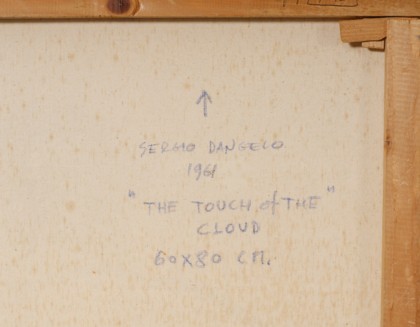 ↑
SERGIO DANGELO
1961
"THE TOUCH of THE"
CLOUD
60x80 CM.